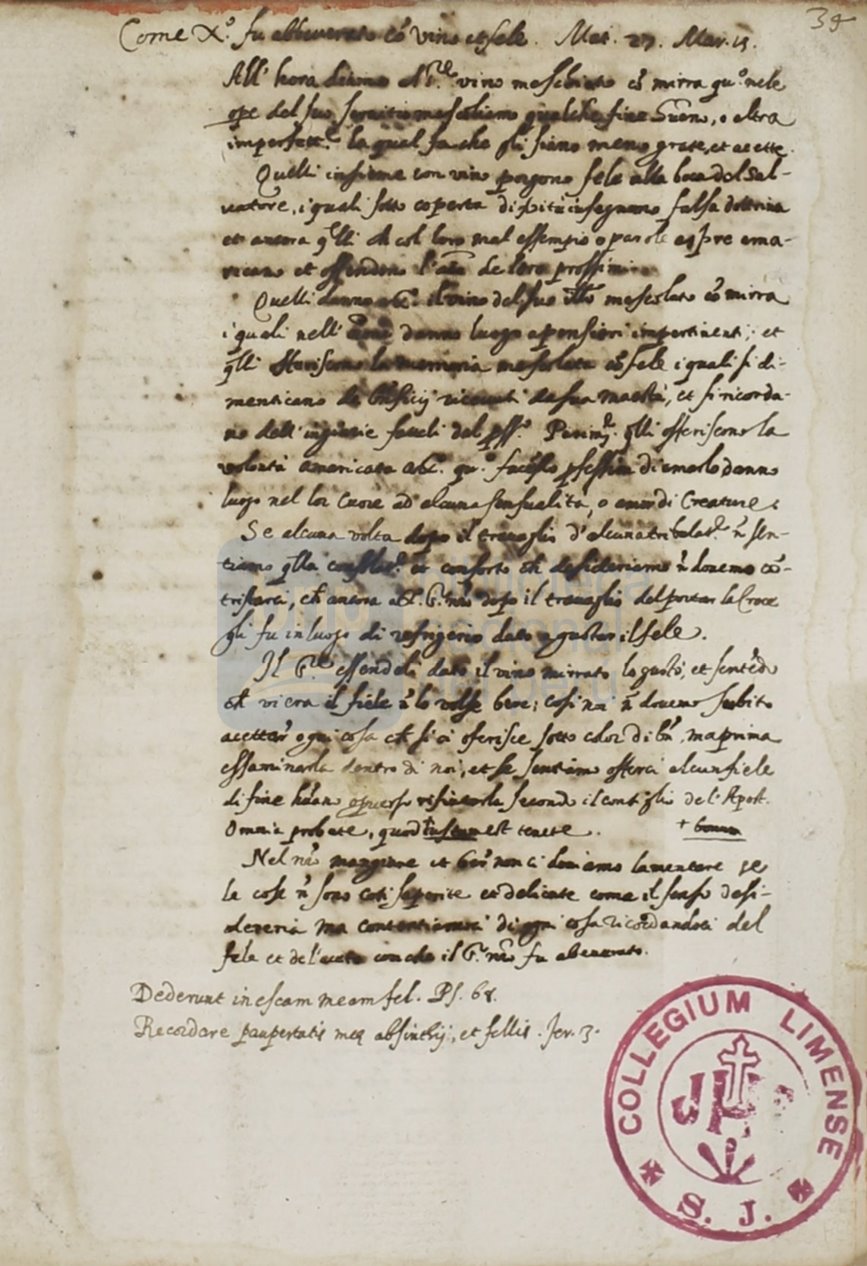 39
Come X.º fu abbeverato cõ vino et fele. Mat. 27. Mar. 15.
All' hora diamo al S.re vino meschiato cõ mirra qu.º nele
ope del suo servitio mescoliamo qualche fine o altra
imperfett.e la qual fa che gli siano meno grate, et accette.
Quelli insieme con vino porgono fele alla boca del Sal-
vatore, i quali sotto coperta di insegnano falsa dottrina
et ancora q̃lli ch̃ col loro mal essempio o parole aspre ama-
ricano et offendono l'aĩa de loro prossimi
Quelli danno al S. il vino del suo mescolato cõ mirra
i quali nell' danno luogo a pensieri impertinenti; et
q̃lli offeriscono la memoria mescolata cõ fele i quali si di-
menticano de bñficij ricevuti da sua maestà, et si ricorda-
no dell' ingiurie fateli dal pss.º Parim.te q̃lli offeriscono la
volontà amaricata al S. qu.º di amarlo danno
luogo nel lor cuore ad alcuna sensualità, o amor di Creature.
Se alcuna volta dopo il travaglio d'alcuna tribolat.e ñ sen-
tiamo q̃lla consolat.e et conforto ch̃ desideriamo ñ dovemo cõ-
tristarci, ch̃ ancora al S. ñro dopo il travaglio del portar la Croce
gli fu in luogo di refrigerio dato a gustar il fele.
Il S.re essendoli dato il vino mirrato lo gustò, et sentẽdo
ch̃ vi era il fiele ñ lo volse bere; così noi ñ dovemo subito
accettar ogni cosa ch̃ si ci oferisce sotto color di bñ, ma prima
essaminarla dentro di noi, et se sentiamo esserci alcun fiele
di fine rifiutarla secondo il consiglio de l'Apost.
Omnia probate, quod iustum est tenete. + bonum
Nel ñro mangiare et ber non ci doviamo lamentare se
le cose ñ sono così saporite et delicate come il senso desi-
dereria ma contentiamoci di ogni cosa ricordandoci del
fele et de l'aceto con che il S. ñro fu abeverato.
Dederunt in escam meam fel. Ps. 68.
Recordare paupertatis meę absinthij, et fellis. Jer. 3.
COLLEGIUM LIMENSE
JHS
S. J.